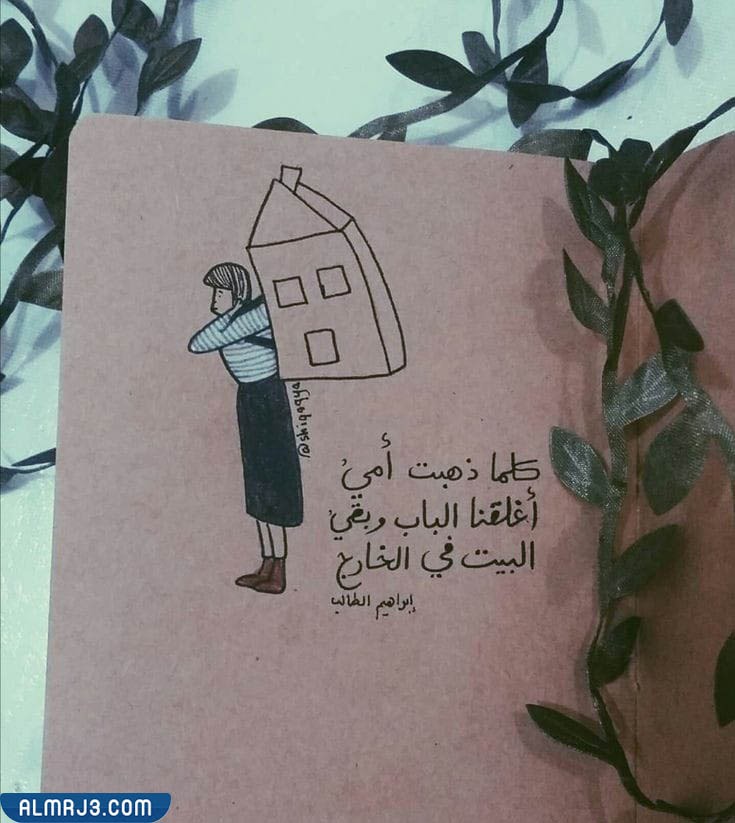 كلما ذهبت أمي
أغلقنا الباب وبقي
البيت في الخارج
إبراهيم الطالب
ALMRJ3.COM